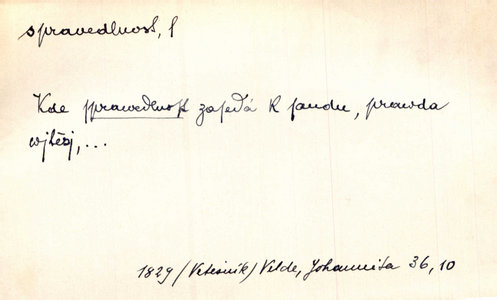 spravedlnost, f
Kde sprawedlnost zasedá k saudu, prawda
wjtězj, ...
1829 (Vetešník) Velde, Johannita 36, 10